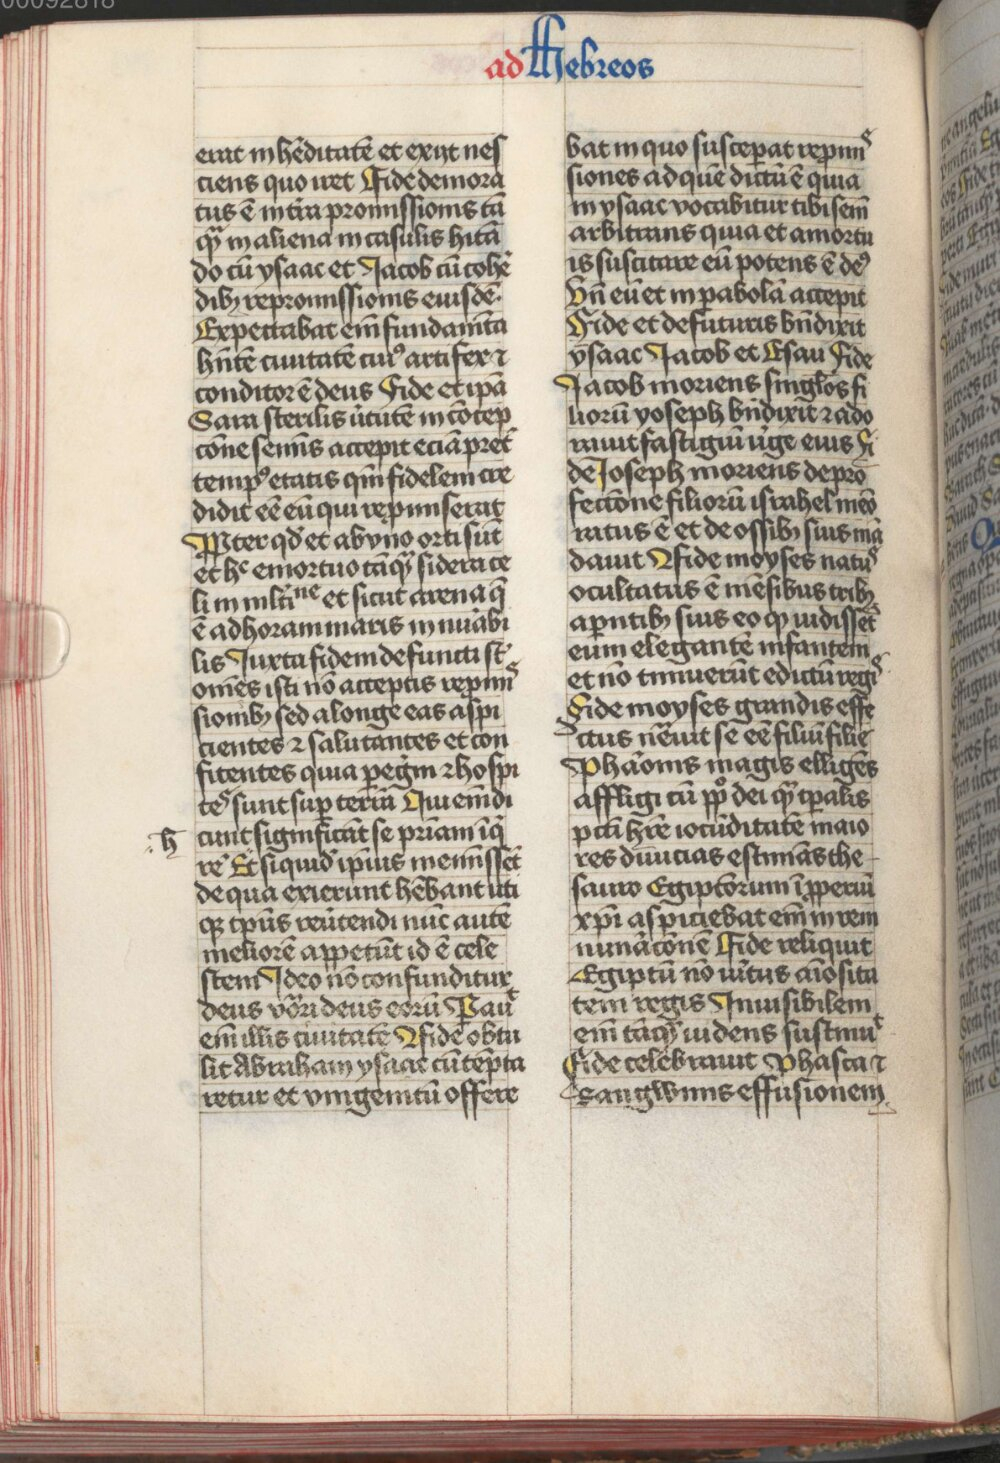 00092818
ad Hebreos
erat in hēditatē et exijt nes
ciens quo iret Fide demora
tus ē in tr̄a promissionis tā
qꝫ in aliena in casulis hītā
do cū ysaac et Jacob cū cohē
dibꝫ repromissionis eiusdē
Expectabat em̄ fundamēta
hn̄tē ciuitatē cuiꝰ artifex ⁊
conditor ē deus Fide et ip̄a
Sara sterilis v̄tutē in cōcep
cōne semīs accepit eciā pret̄
tempꝰ etatis qm̄ fidelem cre
didit eē eū qui repmiserat
Pter qd̓ et ab vno orti sūt
et hͨ emortuo tāqꝫ sidera ce
li in ml̄tⁿᵉ et sicut arena q̄
ē ad horam maris innūabi
lis Juxta fidem defuncti st̄
om̄es isti nō acceptis repmi
sionibꝫ sed a longe eas aspi
cientes ⁊ salutantes et con
fitentes quia peg̓ni ⁊ hospi
tes sunt sup̱ terrā Qui em̄ di
cunt significāt se pr̄iam īq̓
h
re Et siquid̓ ipius meminisset
de qua exierunt hēbant uti
qꝫ tp̄us reūtendi nūc autē
meliorē appetūt id ē cele
stem Ideo nō confunditur
deus vōri deus eorū Pauͭ
em̄ illis ciuitatē Fide obtu
lit Abraham ysaac cū tēpta
retur et vnigenitū offere
bat in quo susceperat repmiˢ
siones ad quē dictū ē quia
in ysaac vocabitur tibi sem̄
arbitrans quia et a mortu
is suscitare eū potens ē deꝰ
Vn̄ eū et in pabolā accepit
Fide et de futuris bn̄dixit
ysaac Jacob et Esau Fide
Jacob moriens sing̓los fi
liorū yoseph bn̄dixit ⁊ ado
rauit fastigiū v̓ge eius Fi
de Joseph moriens de pro
fectione filiorū israhel meō
ratus ē et de ossibꝫ suis mā
dauit Fide moyses natuˢ
ocultatus ē mēsibus tribꝫ
a pn̄tibꝫ suis eo qꝫ vidisset̄
eum elegantē infantem
et nō timuerūt edictū regiˢ
Fide moyses grandis effe
ctus nēuit se eē filiū filie
Pharaonis magis elligēs
affligi cū pp̄o dei qꝫ tp̄alis
pcti hr̄e iocūditatē maio
res diuicias estimās the
sauro Egiptiorum īpperiū
xp̄i aspiciebat em̄ in rem
nunācōnē Fide reliquit
Egiptū nō v̓itus aīositā
tem regis Inuisibilem
em̄ tāqꝫ uidens sustinuͭ
Fide celebrauit Phasca ⁊
Sangwinis effusionem